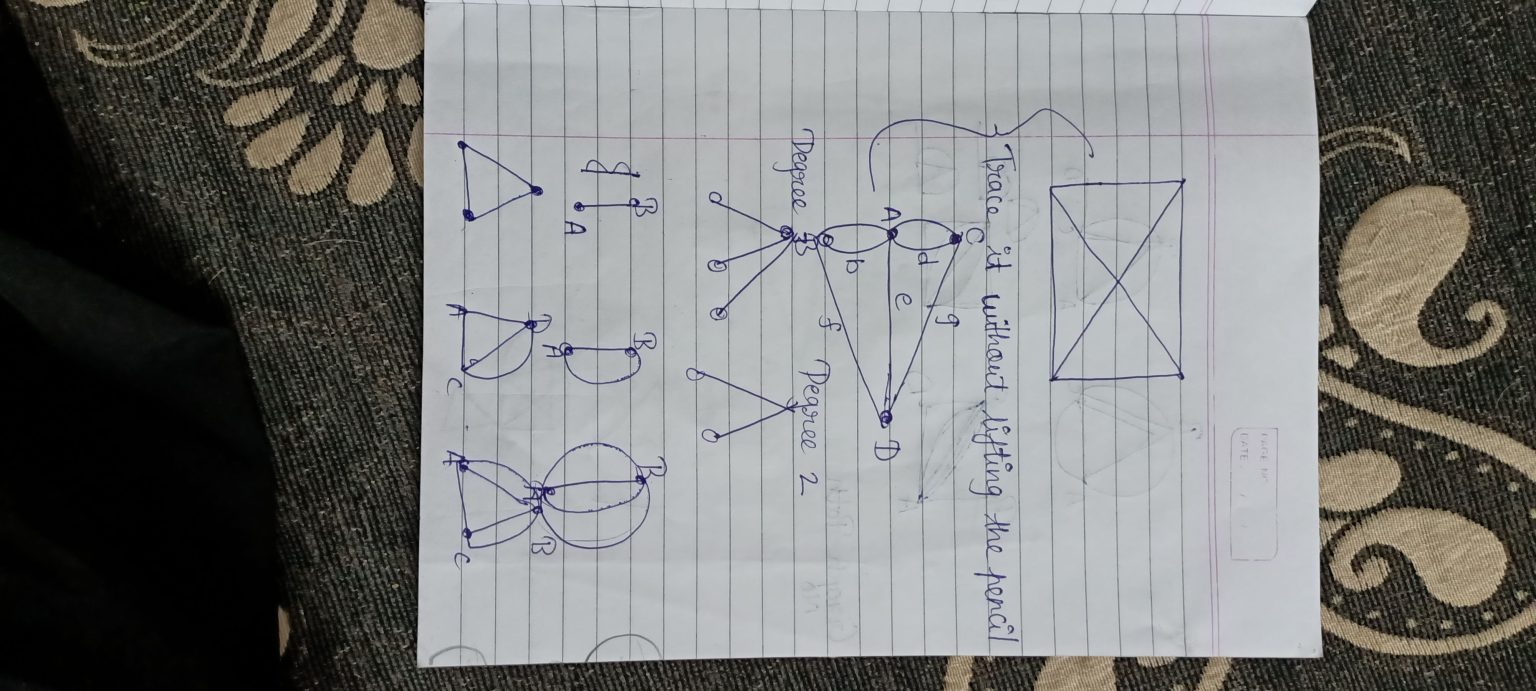 PAGE NO.
DATE:
Trace it without lifting the pencil
C
d
g
A
e
D
b
f
B
Degree 3
Degree 2
B
B
B
A
A
A
B
B
A
C
A
C